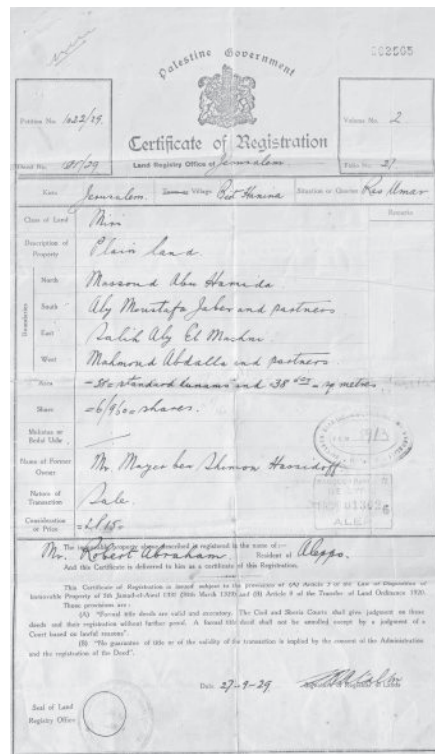 003565
Palestine Government
Petition No. 1022/29.
Volume No. 2
Certificate of Registration
Deed No. /29
Land Registry Office of Jerusalem.
Folio No. 21
Kaza Jerusalem. Village Beit Hanina Situation or Quarter Ras Umar
Class of Land Miri
Remarks
Description of Property Plain land.
Boundaries
North Massoud Abu Hamida
South Aly Moustafa Jaber and partners
East Salih Aly El
West Mahmoud Abdalla and partners
Area standard dunams and 38 sq metres
Share 6/9600 shares.
Mulhaka or Bedal Ushr
Name of Former Owner Mr. Mayer ben Shimon Hassidoff
Nature of Transaction Sale.
Consideration or Price
The immovable property above described is registered in the name of:—
Mr. Robert Abraham. Resident of Aleppo.
And this Certificate is delivered to him as a certificate of Registration.
This Certificate of Registration is issued subject to the provision of (A) Article 3 of the Law of Disposition of
Immovable Property of 5th Jamad-ul-Awal 1331 (30th March 1329) and (B) Article 8 of the Transfer of Land Ordinance 1920.
Those provisions are:
(A) "Formal title deeds are valid and executory. The Civil and Sheria Courts shall give judgment on these
deeds and their registration without further proof. A formal title deed shall not be annulled except by a judgment of a
Court based on lawful reasons".
(B) "No guarantee of title or of the validity of the transaction is implied by the consent of the Administration
and the registration of the Deed".
Date 27-9-29
Registrar of Lands
Seal of Land
Registry Office